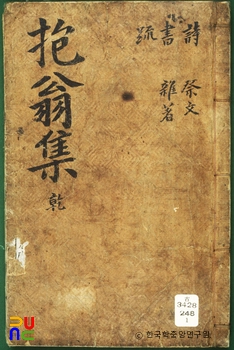 詩 祭文
書 雜著
疏
抱翁集 乾
3428
248
1
© 한국학중앙연구원